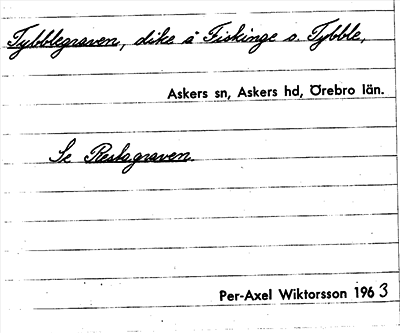 Tybblegraven, dike å Fiskinge o. Tybble,
Askers sn, Askers hd, Örebro län.
Se Restagraven.
Per-Axel Wiktorsson 1963